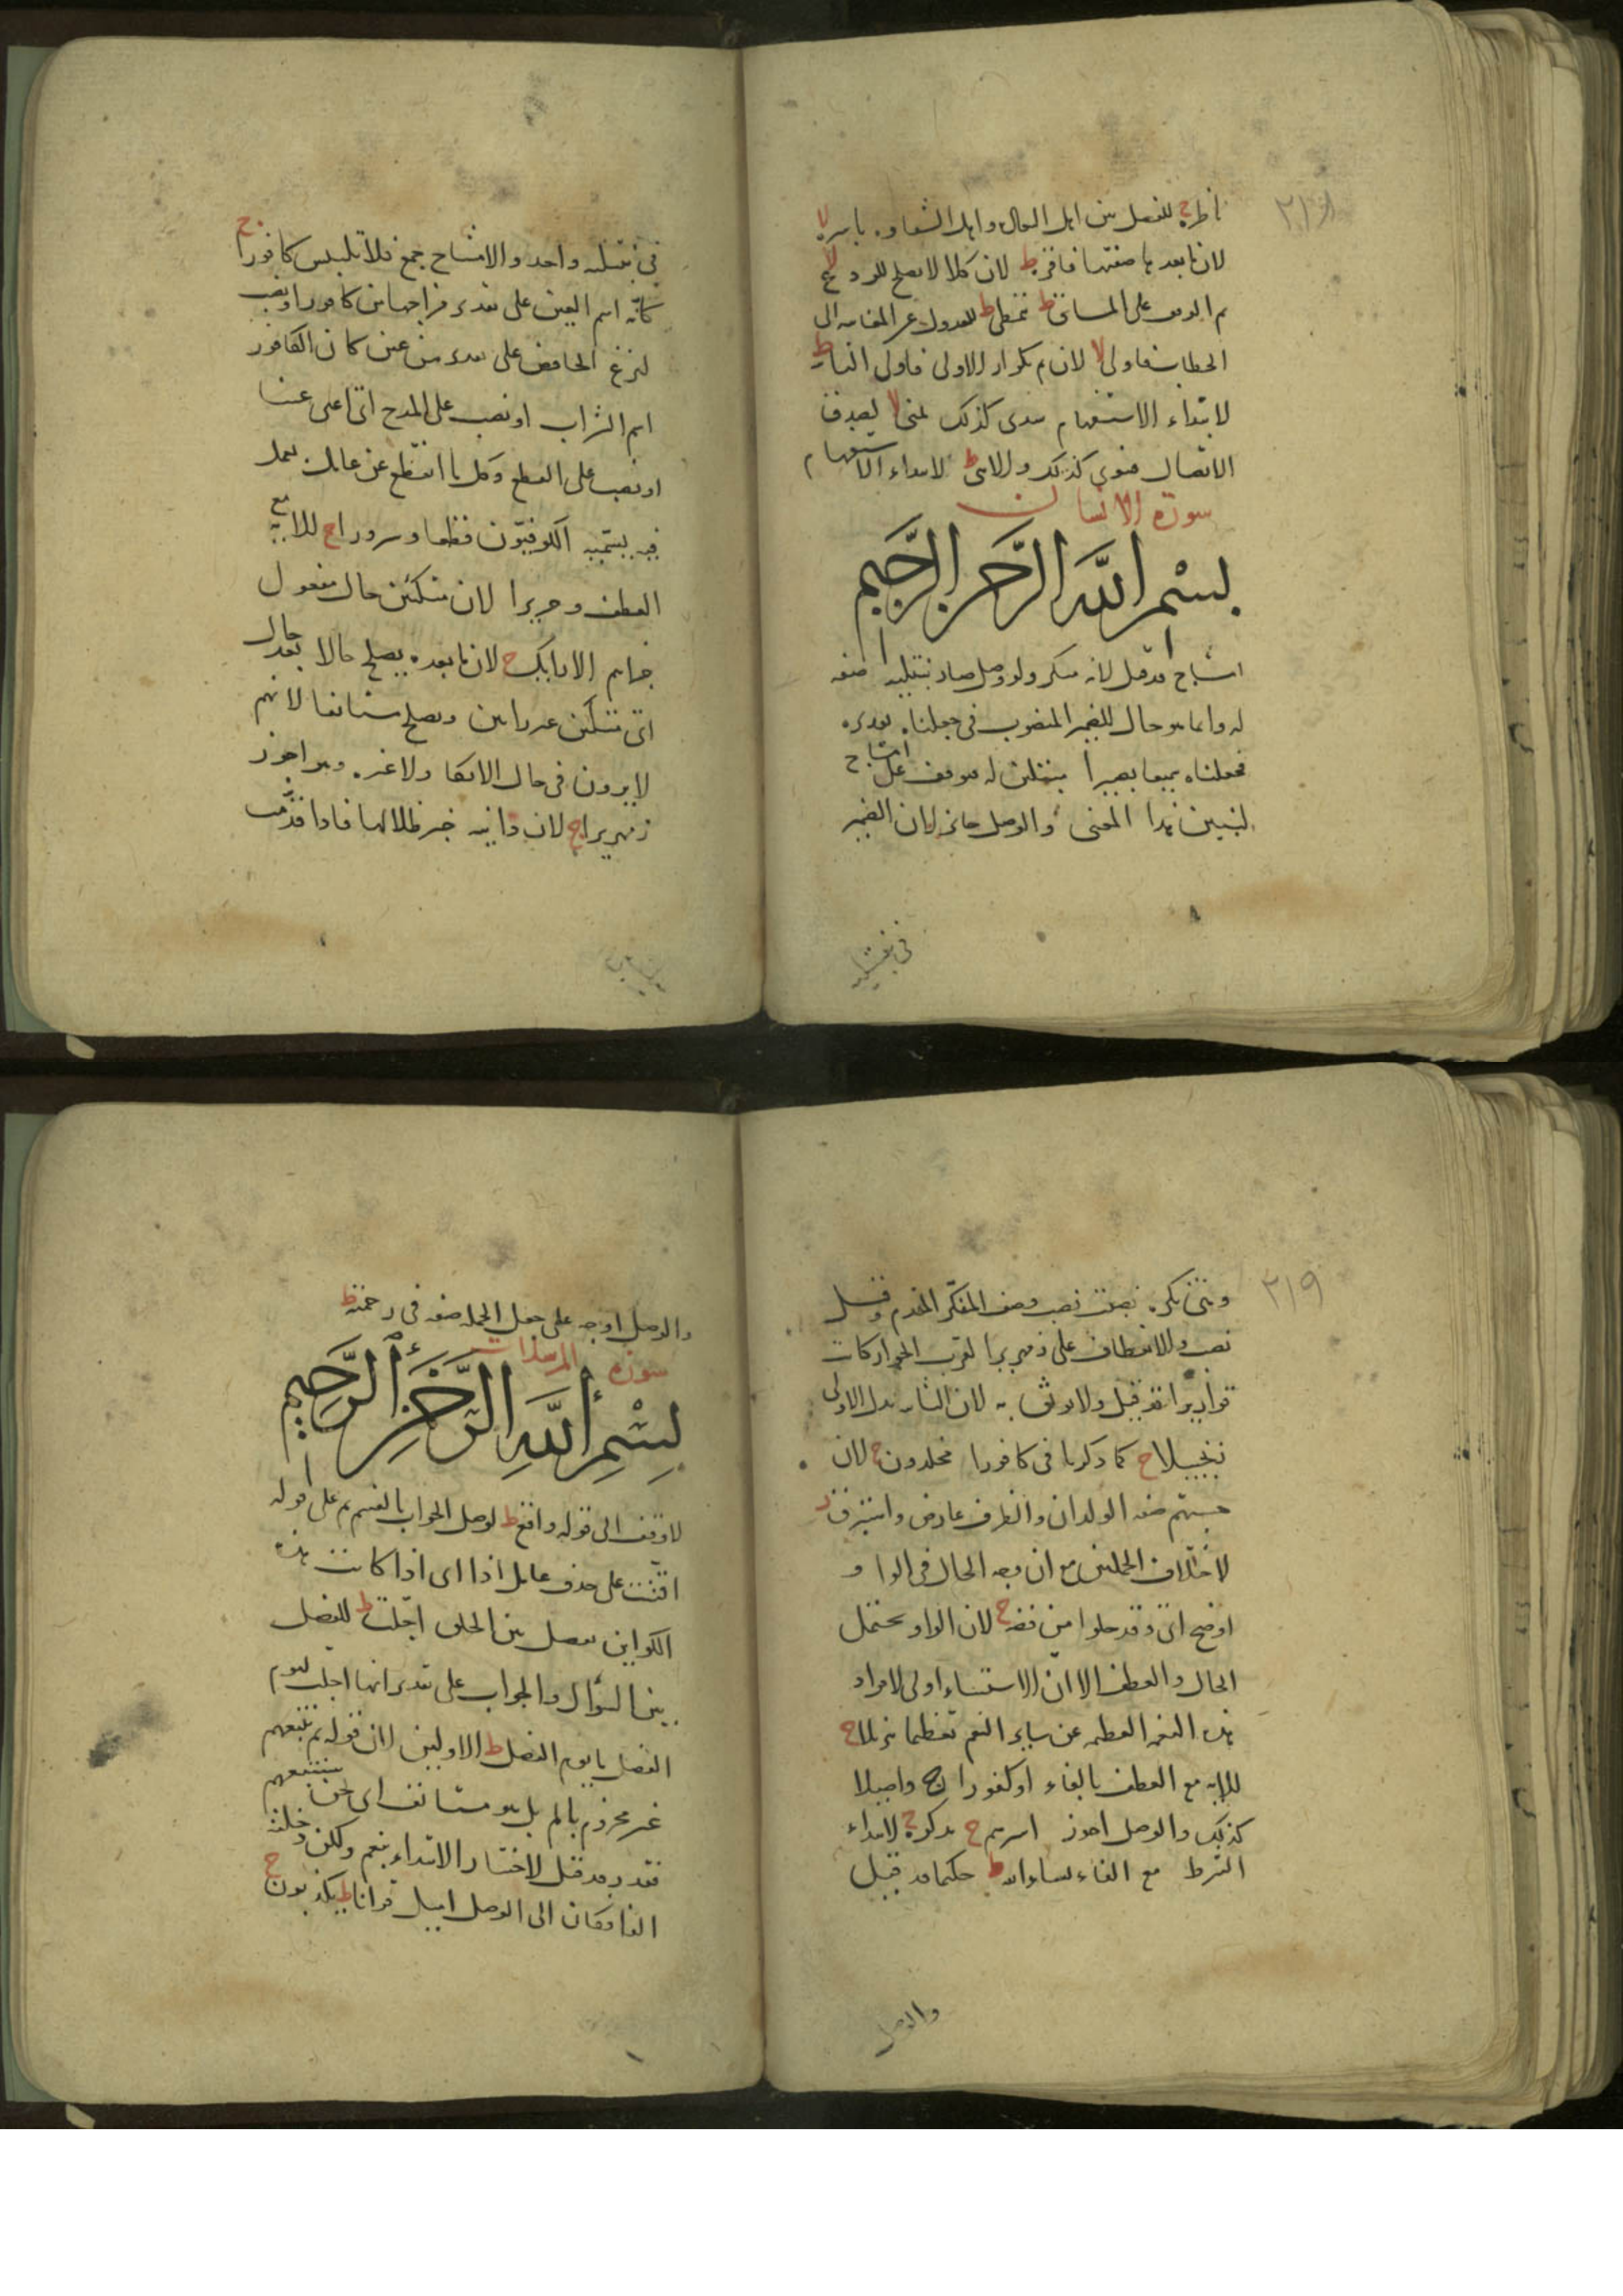 ٢١٨
ناظرة ج للفصل بين اهل الوصال واهل الشقاوة باسرة لا
لان ما بعدها صفتها فاقرة ط لان كلا لا يصلح للردع
ثم الوقف على المساق ط يتمطى ط للعدول عن المغايبة الى
الخطاب فاولى لا لان ثم لتكرار الاولى فاولى الثانية ط
لابتداء الاستفهام سدى كذلك يمنى لا لعدق
الاتصال فسوى كذلك والانثى ط لابتداء الاستفهام
سورة الانسان
بسم الله الرحمن الرحيم
امشاج قد قيل لانه منكر ولو وصل صار نبتليه صفة
له وانما هو حال للضمير المنصوب في جعلناه تقديره
فجعلناه سميعا بصيرا مبتلين له فوقف على امشاج
ليتبين هذا المعنى والوصل جائز لان الضمير
في نبتليه
في نبتليه واحد والامشاج جمع فلا تلبيس كافورا ج
كانه اسم العين على تقدير مزاجها من كافور او نصب
لنزع الخافض على تقدير من عين كان الكافور
اسم الشراب او نصب على المدح اى اعنى عينا
او نصب على القطع وكل ما انقطع عن عامله يعمل
فيه يسميه الكوفيون قطعا وسرورا ج للاية مع
العطف وحريرا لان متكئين حال مفعول
جزاهم الارايك ج لان ما بعده يصلح حالا بعد حال
اى متكئين غير رائين ويصلح مستانفا لانهم
لا يرون في حال الاتكا ولا غيره وهو اجوز
زمهريرا ج لان دانية خبر ظلالها فاذا قدمت
٢١٩
نصب وصف المنكر المقدم وقيل
نصب للانعطاف على زمهريرا لقرب الجوار كانت
قواريرا قد قيل ولا يوثق به لان الثانية بدل الاولى
زنجبيلا ج كما ذكرنا في كافورا مخلدون ج لان
حسبتهم صفة الولدان والظرف عارض واستبرق ز
لاختلاف الجملتين مع ان وجه الحال في الواو
اوضح اى وقد حلوا من فضة ج لان الواو يحتمل
الحال والعطف الا ان الاستثناء اولى لافراد
هذه النعمة العظيمة عن ساير النعم تعظيما تنزيلا ج
للاية مع العطف بالفاء او كفورا ج واصيلا
كذلك والوصل اجوز اسرهم ج تذكرة ج لابتداء
الشرط مع الفاء يشاء الله ط حكيما قد قيل
والوصل
والوصل اوجه على جعل الجملة صفة في رحمته ط
سورة المرسلات
بسم الله الرحمن الرحيم
لا وقف الى قوله لواقع ط لوصل الجواب بالقسم ثم على قوله
اقتت على حذف عامل اذا اى اذا كانت هذه
الكواين يفصل بين الخلق اجلت ط للفصل
بين السؤال والجواب على تقدير انها اجلت ليوم
الفصل ما يوم الفصل ط الاولين لان قوله ثم نتبعهم
غير مجزوم بالم بل هو مستانف اى نحن سنتبعهم
فقدرنا قد قيل لاختيار الابتداء بنعم ولكن دخلته
الفا فكان الى الوصل اميل فراتا ط يكذبون ج